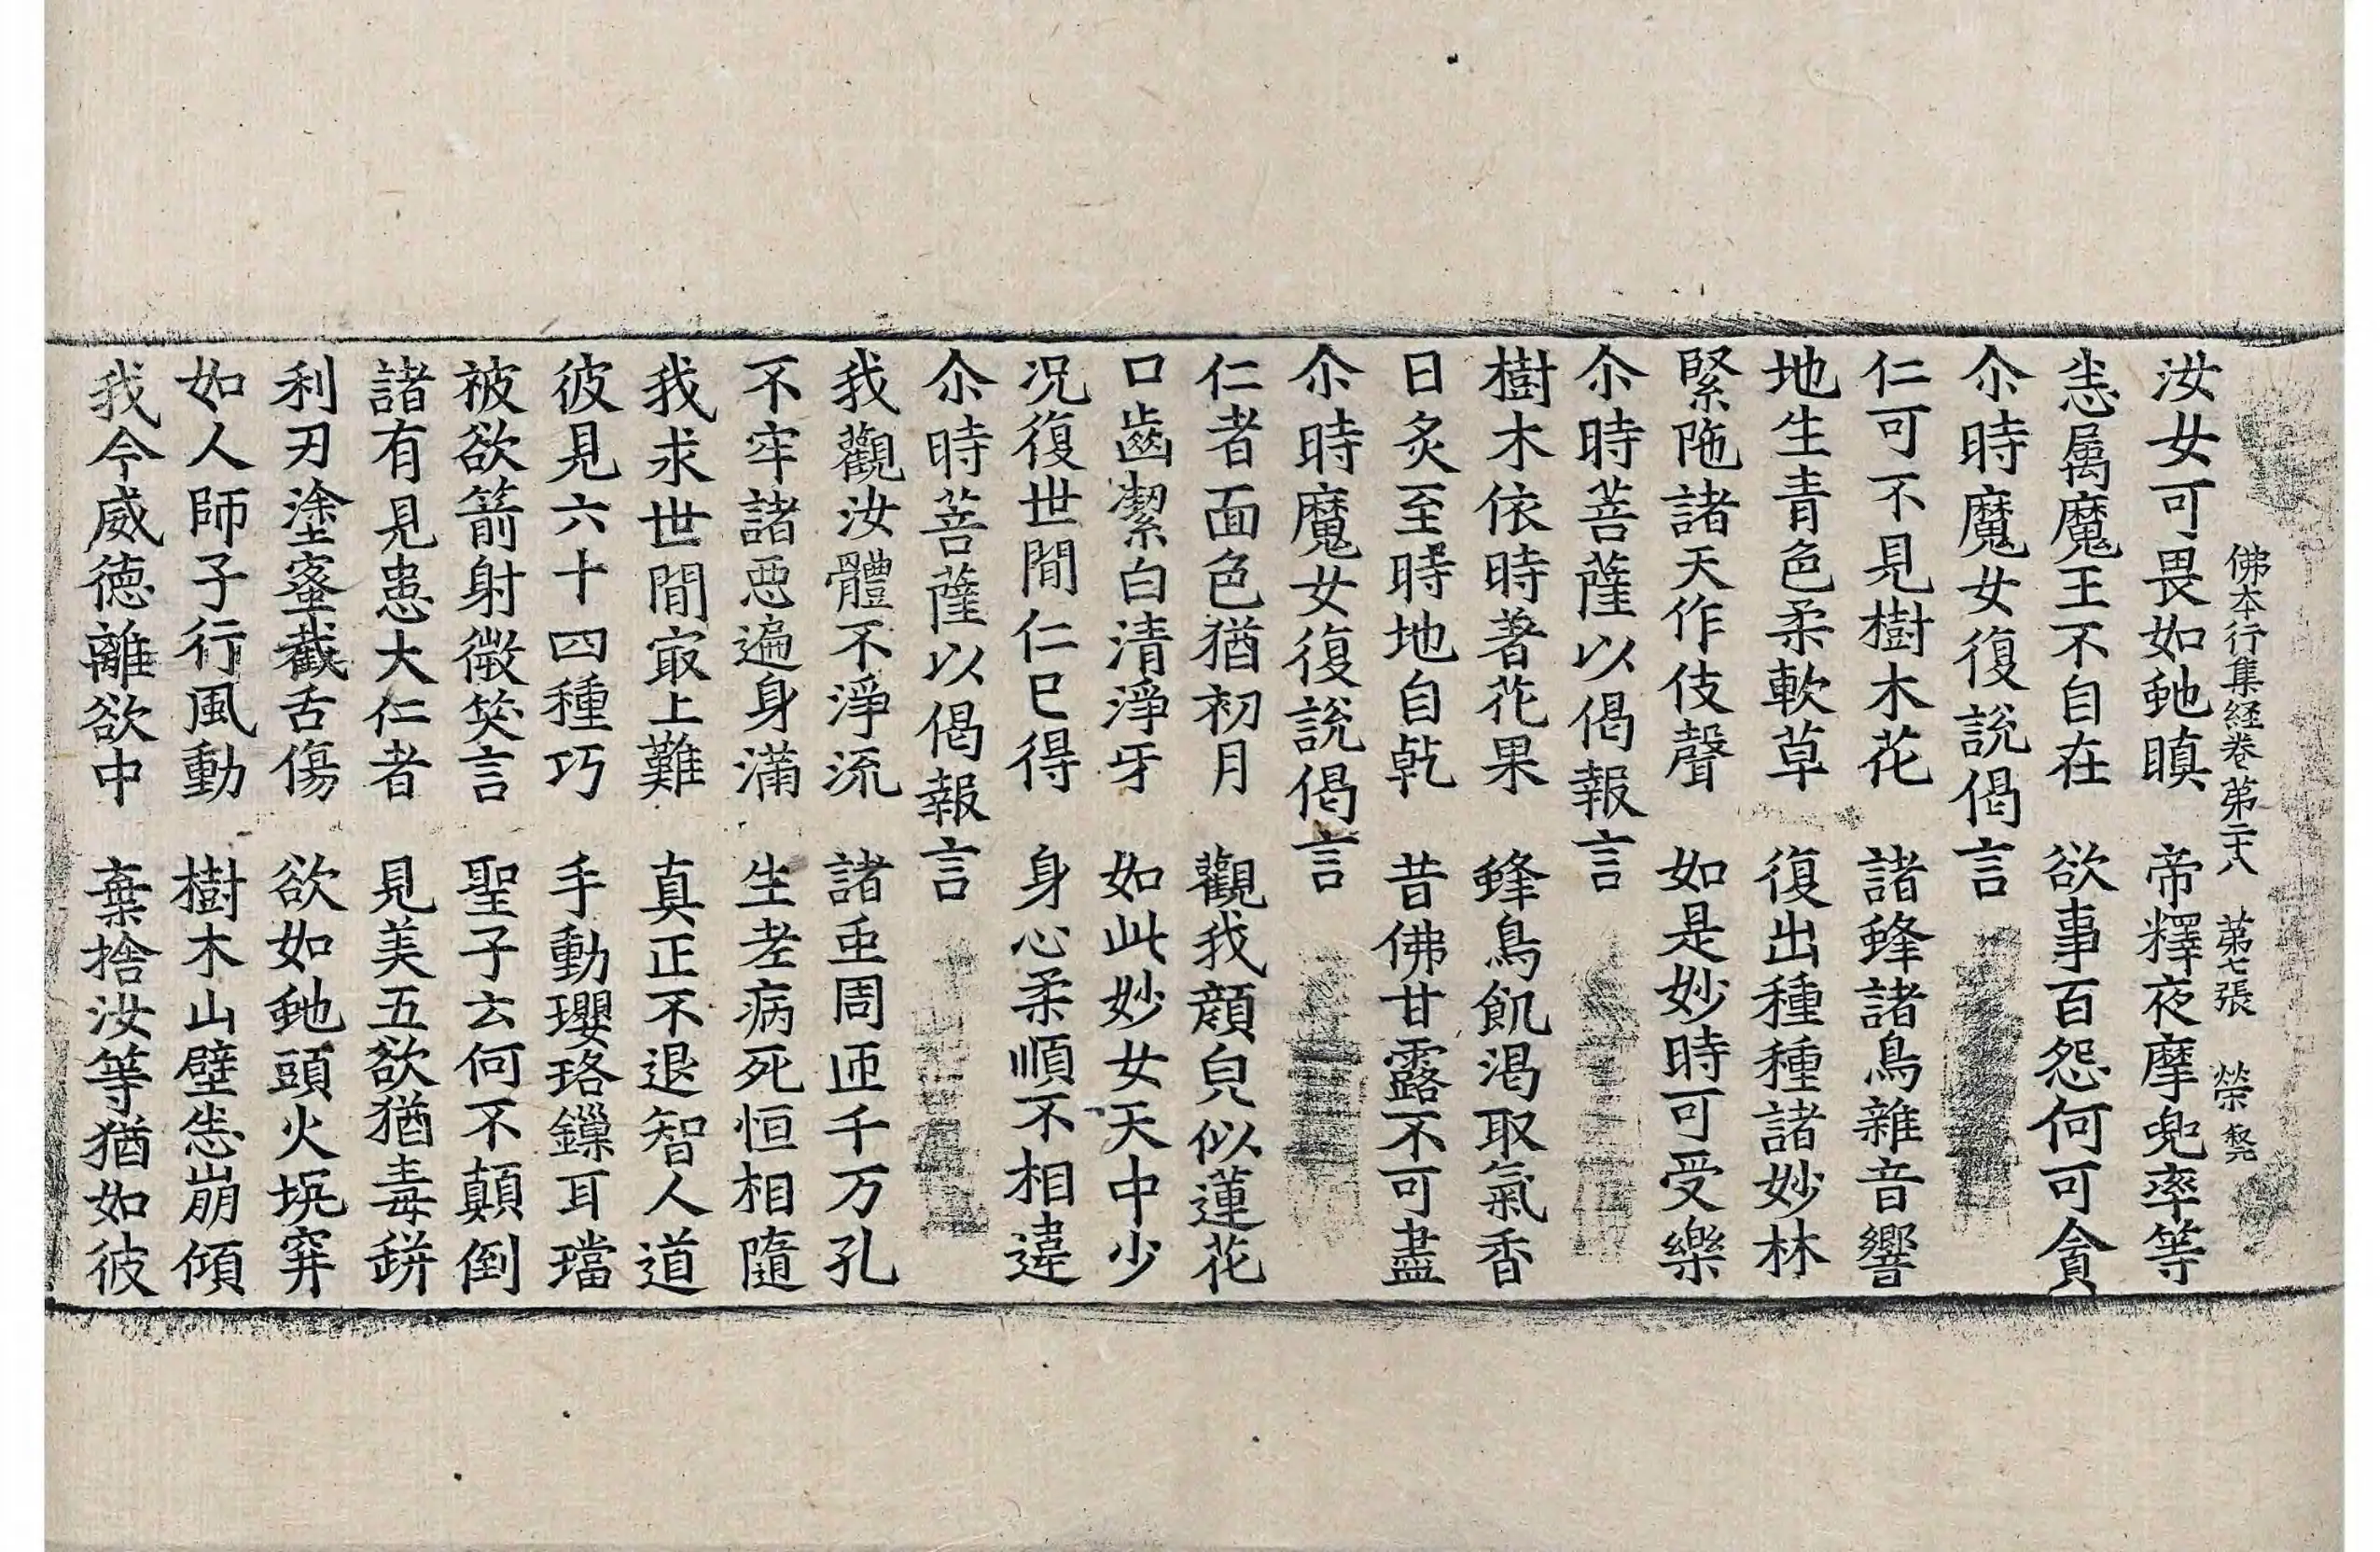 佛本行集経卷第二十八 第七張 榮
汝女可畏如虵瞋 帝釋夜摩兜率等
恙属魔王不自在 欲事百怨何可貪
尒時魔女復說偈言
仁可不見樹木花 諸蜂諸鳥雜音響
地生青色柔軟草 復出種種諸妙林
緊陁諸天作伎聲 如是妙時可受樂
尒時菩薩以偈報言
樹木依時著花果 蜂鳥飢渴取氣香
日炙至時地自乹 昔佛甘露不可盡
尒時魔女復說偈言
仁者面色猶初月 觀我顔皃似蓮花
口齒潔白清淨牙 如此妙女天中少
况復世間仁已得 身心柔順不相違
尒時菩薩以偈報言
我觀汝體不淨流 諸䖝周迊千万孔
不牢諸惡遍身滿 生老病死恒相隨
我求世間㝡上難 真正不退智人道
彼見六十四種巧 手動瓔珞鏁耳璫
被欲箭射微笑言 聖子云何不顛倒
諸有見患大仁者 見美五欲猶毒缾
利刃塗蜜截舌傷 欲如虵頭火坑穽
如人師子行風動 樹木山壁恙崩傾
我今威徳離欲中 棄捨汝等猶如彼